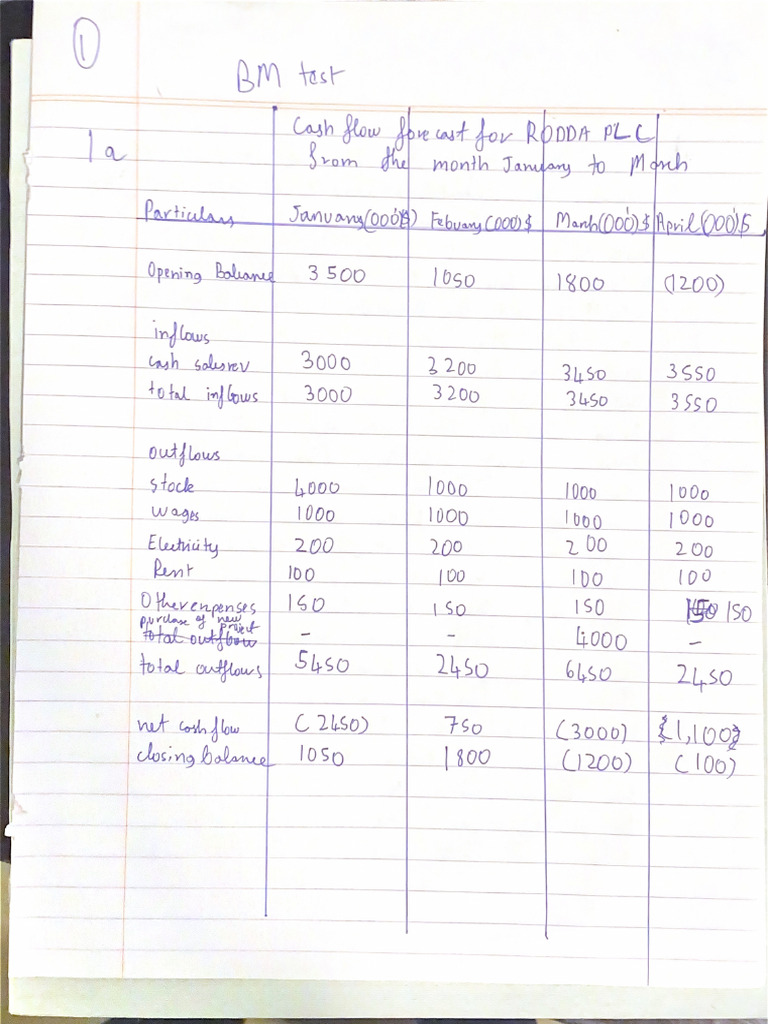 1
BM test
1a
Cash flow forecast for RODDA PLC
from the month January to March
Particulars January(000's) Febuary(000)$ March(000')$ April(000')$
Opening Balance 3500 1050 1800 (1200)
inflows
cash salesrev 3000 3200 3450 3550
total inflows 3000 3200 3450 3550
outflows
stock 4000 1000 1000 1000
wages 1000 1000 1000 1000
Electricity 200 200 200 200
Rent 100 100 100 100
Other expenses 150 150 150 150
purchase of new project - - 4000 -
total outflow
total outflows 5450 2450 6450 2450
net cash flow (2450) 750 (3000) 1,100
closing balance 1050 1800 (1200) (100)